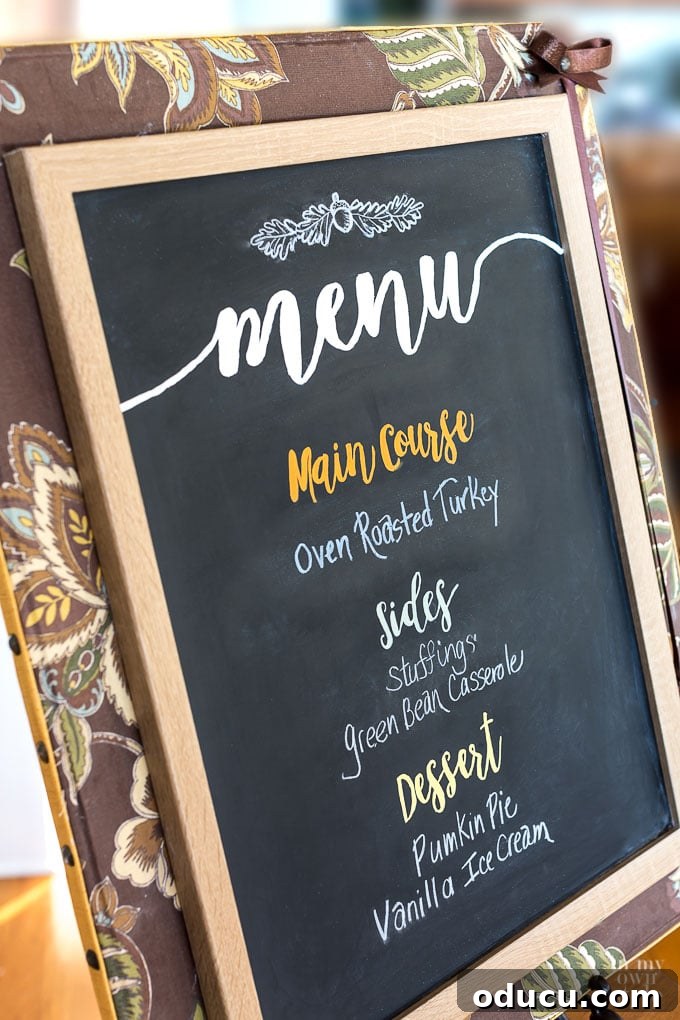 menu
Main Course
Oven Roasted Turkey
Sides
Stuffings
Green Bean Casserole
Dessert
Pumkin Pie
Vanilla Ice Cream
in my
own
oducu.com